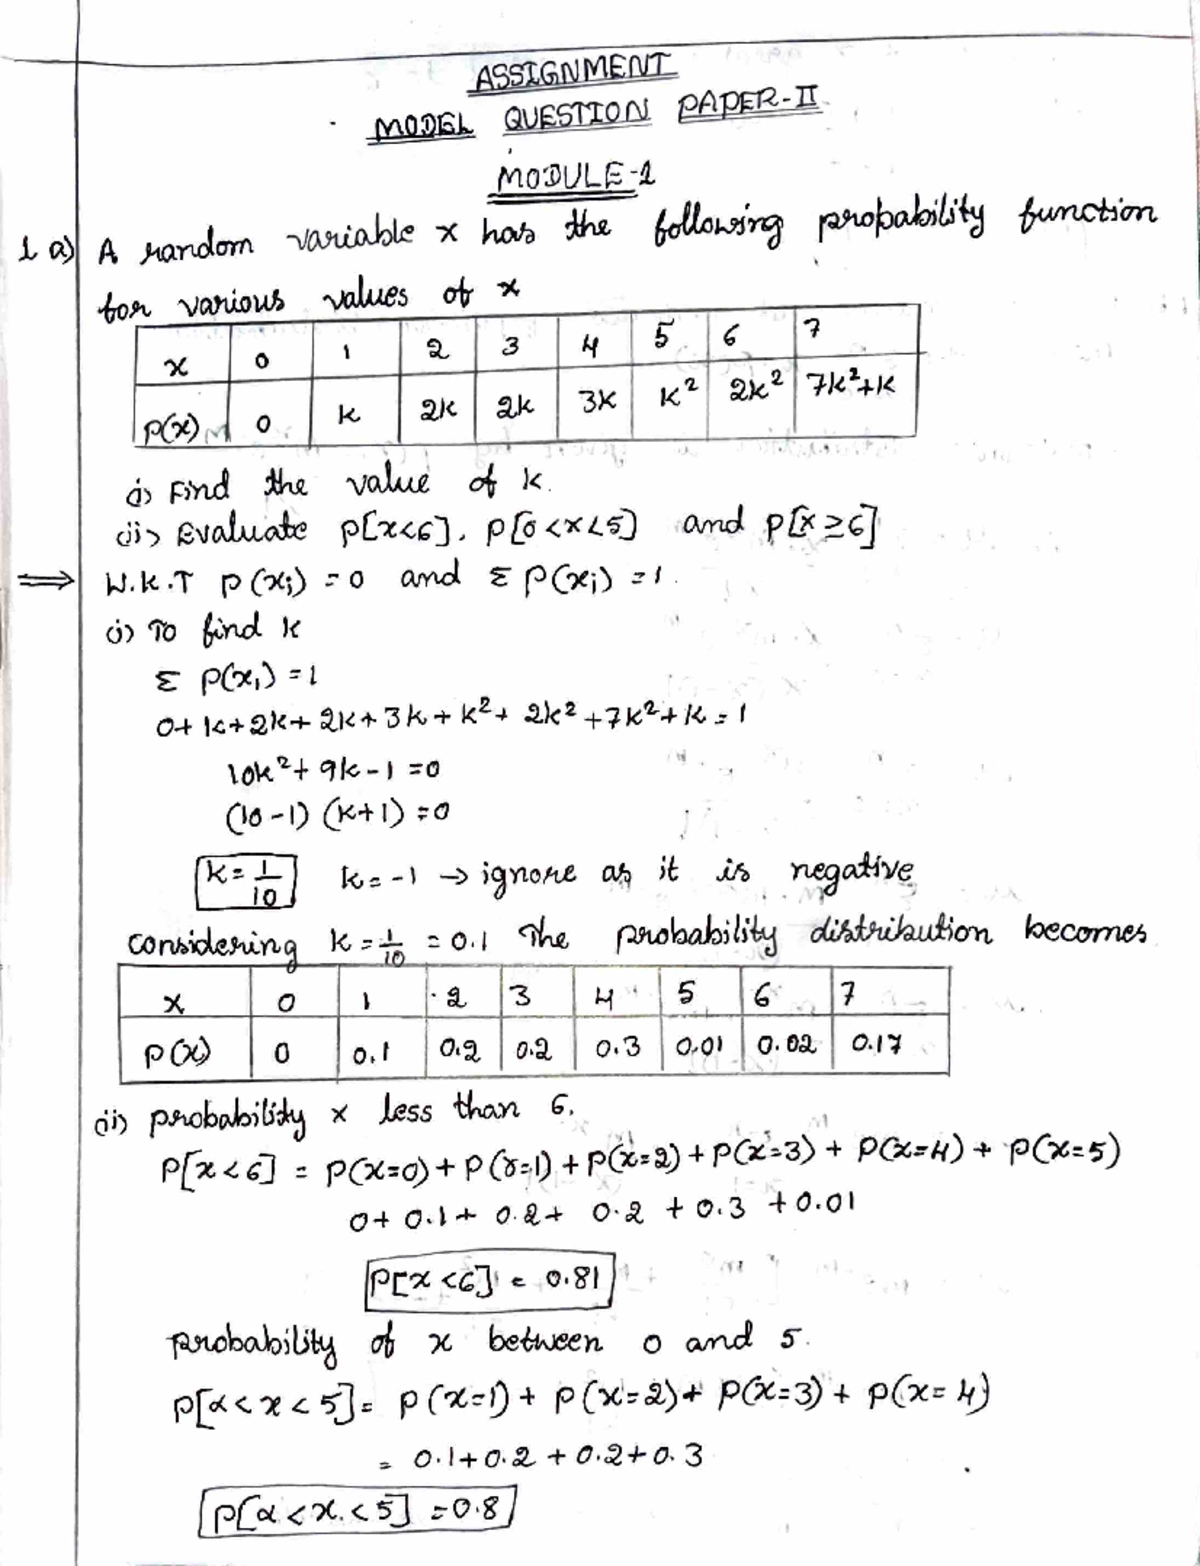 ASSIGNMENT
MODEL QUESTION PAPER-II
MODULE-1
1 a) A random variable x has the following probability function
for various values of x
x 0 1 2 3 4 5 6 7
P(x) 0 k 2k 2k 3k k² 2k² 7k²+k
i) Find the value of k.
ii) Evaluate P[x<6], P[0<x<5] and P[x≥6]
⟹ W.K.T P(xi) = 0 and Σ P(xi) = 1.
i) To find k
Σ P(xi) = 1
0+k+2k+2k+3k+k²+2k²+7k²+k=1
10k²+9k-1=0
(10-1) (k+1)=0
k=1/10 k=-1 → ignore as it is negative
considering k=1/10 = 0.1 The probability distribution becomes
x 0 1 2 3 4 5 6 7
P(x) 0 0.1 0.2 0.2 0.3 0.01 0.02 0.17
ii) probability x less than 6.
P[x<6] = P(x=0)+P(x=1)+P(x=2)+P(x=3)+P(x=4)+P(x=5)
0+0.1+0.2+0.2+0.3+0.01
P[x<6] = 0.81
probability of x between 0 and 5.
P[α<x<5]= P(x=1)+P(x=2)+P(x=3)+P(x=4)
= 0.1+0.2+0.2+0.3
P[α<x.<5] =0.8